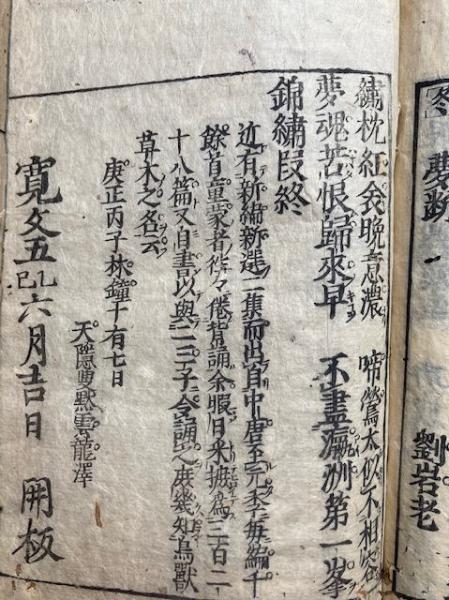 夢斷
劉岩老
繡枕紅衾晩意濃 啼鶯太似不相容
夢魂苦恨歸來早 不盡瀛洲第一峯
錦繡段終
近有新編新選二集而出自中唐至元季毎編千
餘首童蒙者往々倦背誦余暇日采摭為三百二
十八篇又自書以與二三子令誦之庶幾知鳥獸
草木之名云
庚正丙子林鐘十有七日
天隱叟默雲龍澤
寛文五乙巳六月吉日 開板